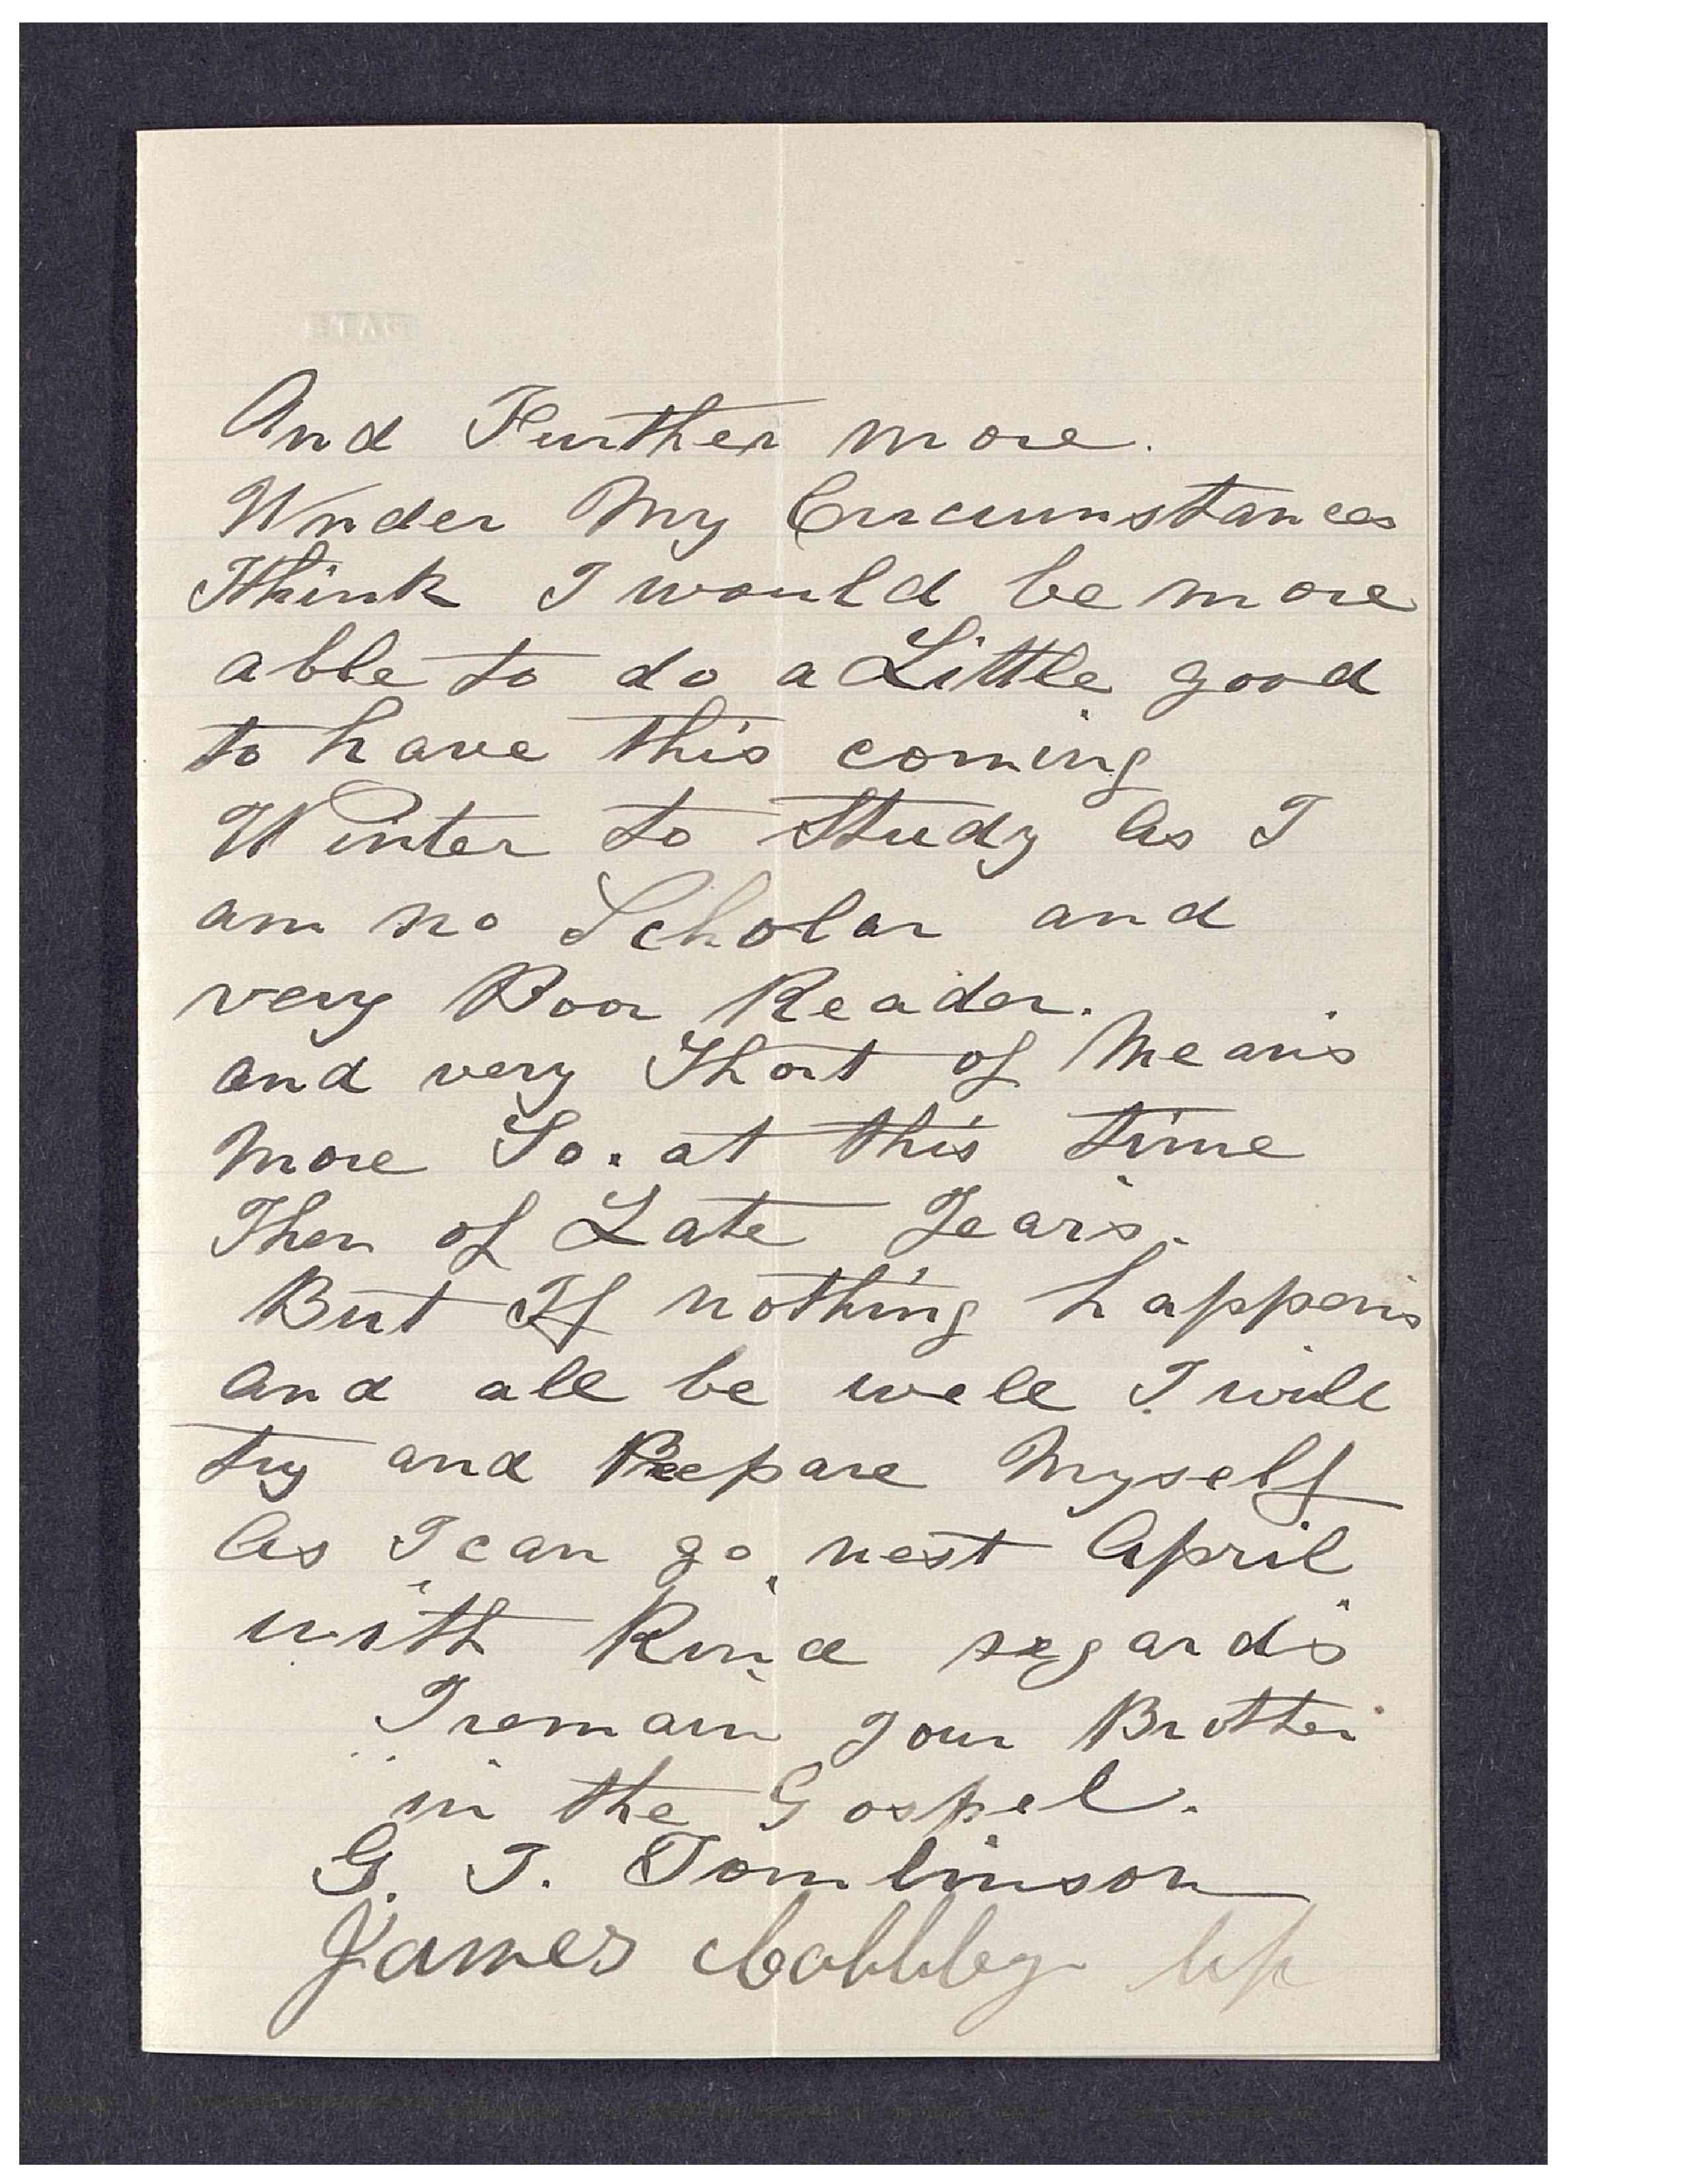 And Further more.
Under My Circumstances
Think I would be more
able to do a Little good
to have this coming
Winter to Study as I
am no Scholar and
very Poor Reader.
and very Short of Means
More So. at this time
Then of Late Years.
But If nothing happens
and all be well I will
try and Prepare Myself
as I can go next April
with Kind regards
I remain your Brother
in the Gospel.
G. T. Tomlinson
James